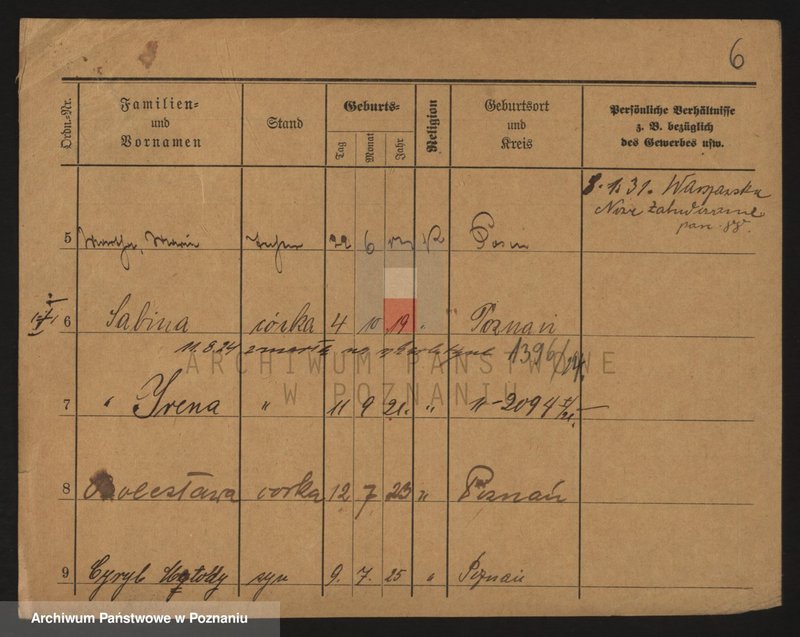 6
Ordn.-Nr. Familien= und Vornamen Stand Geburts= Tag Monat Jahr Religion Geburtsort und Kreis Persönliche Verhältnisse z. B. bezüglich des Gewerbes usw.
8. 1. 31. Warszawska
5 Maria 22 6 Posen
6 Sabina córka 4 10 19 " Poznań
11.8.24 zmarła 1396/24.
ARCHIWUM PAŃSTWOWE
W POZNANIU
7 " Irena " 11 9 21. " 2094
8 Bolesława córka 12 7 23 " Poznań
9 Cyryl Metody syn 9. 7. 25 " Poznań
Archiwum Państwowe w Poznaniu